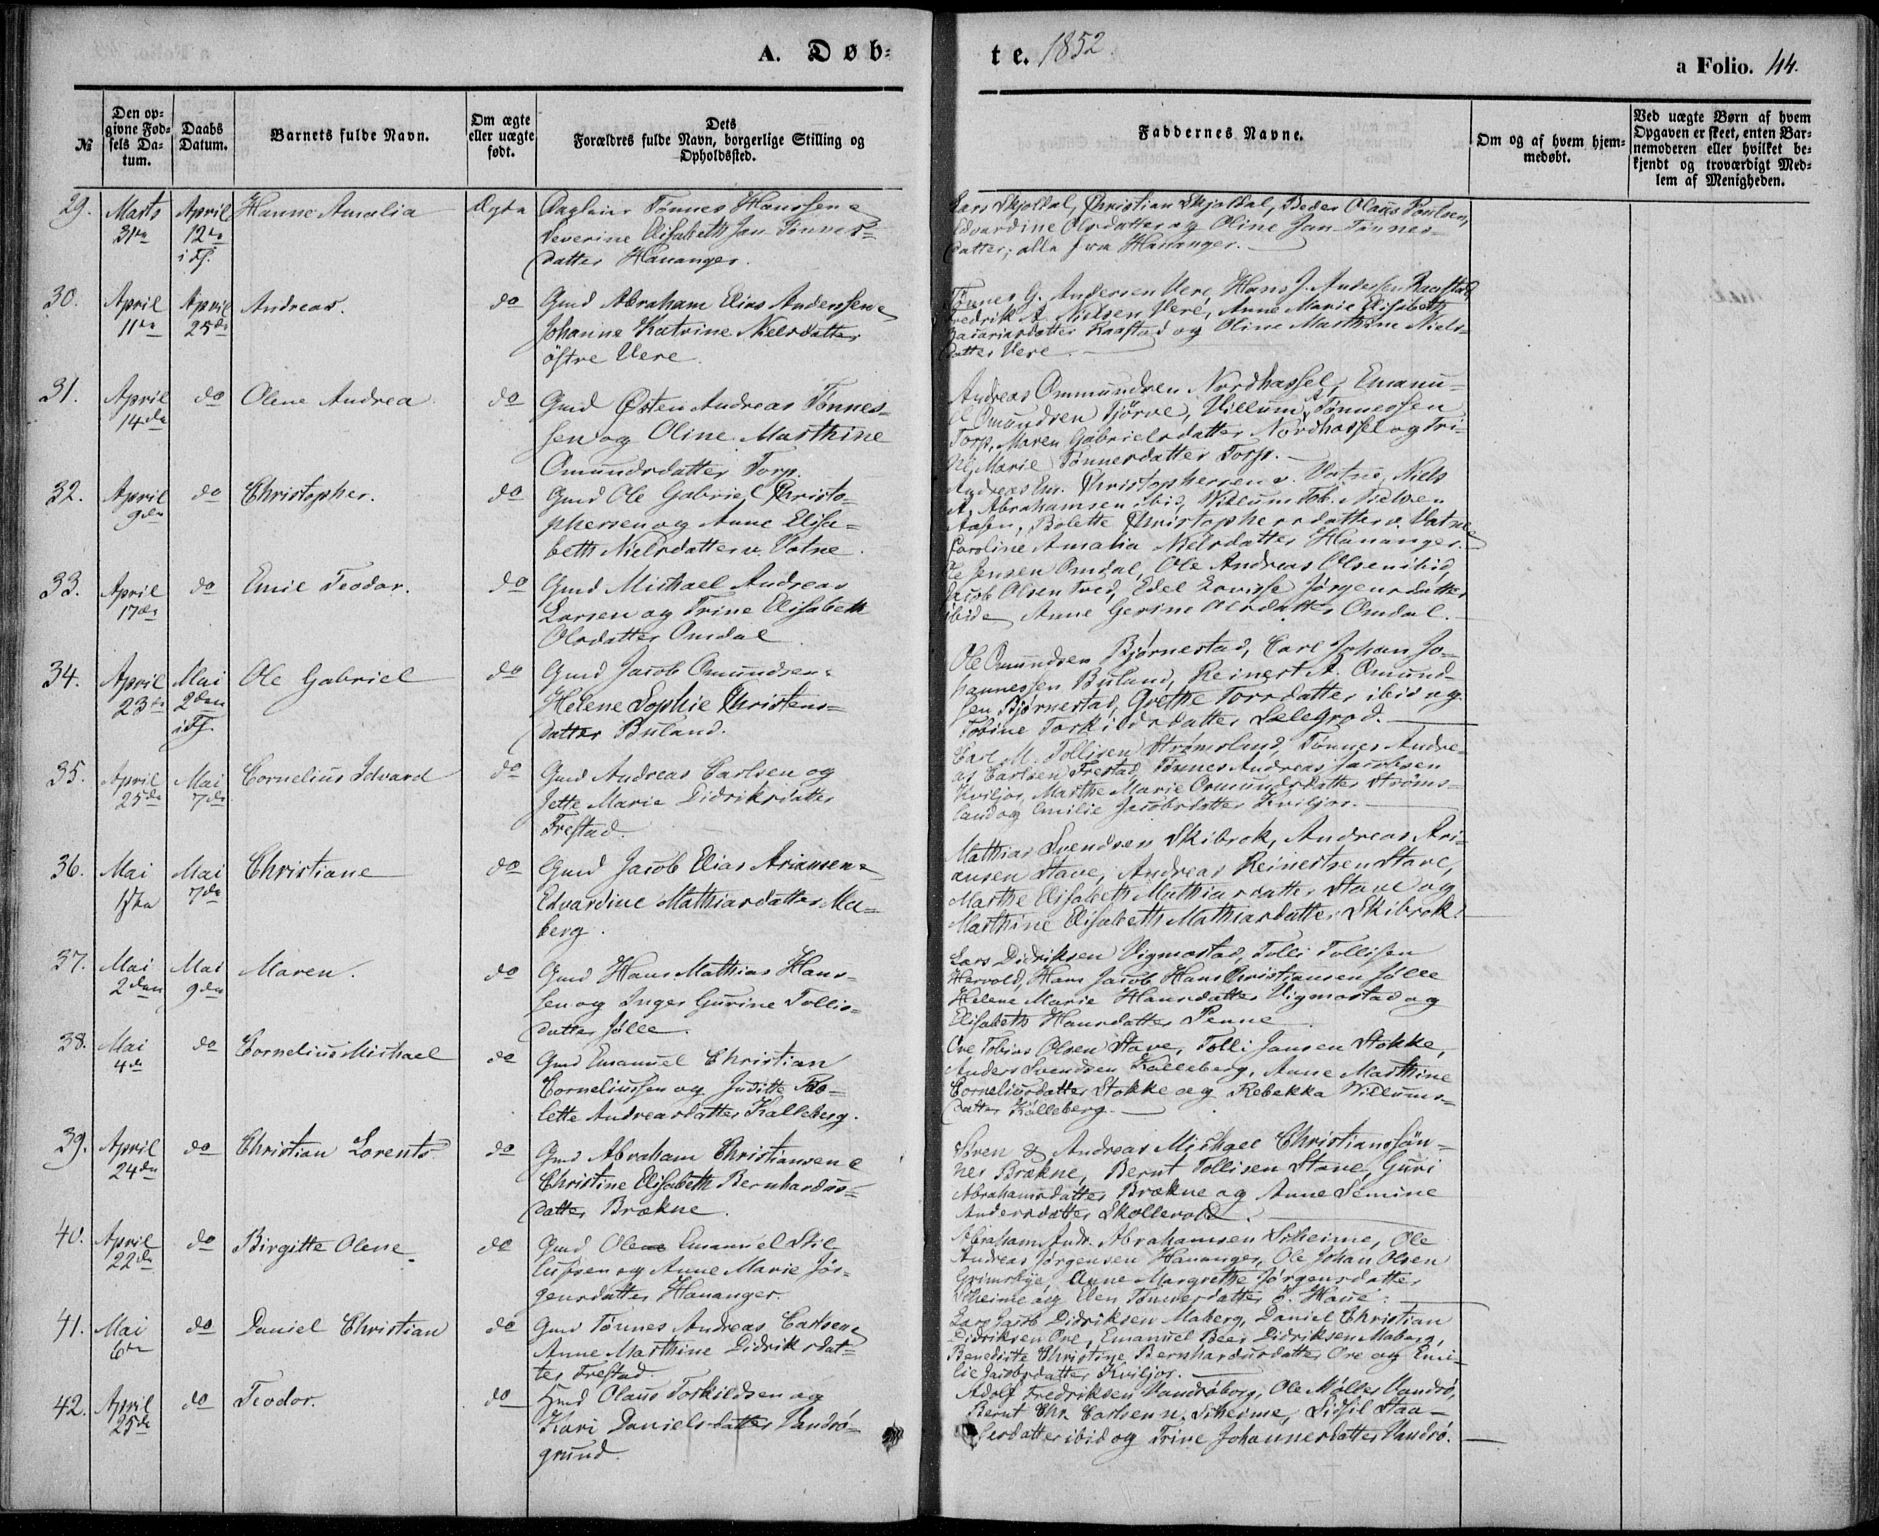 A. Døb-
te. 1852
a Folio. 44.
№
Den op-
givne Fød-
sels Da-
tum.
Daabs
Datum.
Barnets fulde Navn.
Om ægte
eller uægte
født.
Dets
Forældres fulde Navn, borgerlige Stilling og
Opholdssted.
Faddernes Navne.
Om og af hvem hjem-
medøbt.
Ved uægte Børn af hvem
Opgaven er skeet, enten Bar-
nemoderen eller hvilket be-
kjendt og troværdigt Med-
lem af Menigheden.
29. Marts April Hanne Amalia Ægte Tønnes Hanssen e
31te 12te Severine Elisabeth Jan Tønnes-
datter Hananger.
Lars Skjoldal, Christian Skjoldal, Peder Olaus Poulsen,
Edvardine Olsdatter og Oline Jan Tønnes-
datter, alle fra Hananger.
30. April April Andreas. do Gmd Abraham Elias Anderssen e
11te 25de Johanne Katrine Nielsdatter
östre Vere
Tønnes G. Andersen Vere, Hans J. Andersen Raastad,
Fredrik A. Nielsen Vere, Anne Marie Elisabeth
Zacariasdatter Raastad og Oline Marthine Niels-
datter Vere.
31. April do Olene Andrea do Gmd Østen Andreas Tønnes-
14de sen og Oline Marthine
Omundsdatter Torp.
Andreas Ommundsen Nordhassel, Emanu-
el Omundsen Tjörve, Villum Tønnessen
Torp, Maren Gabrielsdatter Nordhassel og Tri-
ne Marie Tønnesdatter Torp.
32. April do Christopher. do Gmd Ole Gabriel Christo-
9de phersen og Anne Elisa-
beth Nielsdatter v. Vatne.
Andreas Em. Christophersen v. Vatne, Niels
A. Abrahamsen ibid, Willum Tob. Nielsen
Aasen, Bolette Christophersdatter v. Vatne
Caroline Amalia Nielsdatter Hananger.
33. April do Emil Teodor. do Gmd Michael Andreas
17de Larsen og Trine Elisabeth
Olsdatter Omdal
Ole Jensen Omdal, Ole Andreas Olsen ibid,
Jacob Olsen Tved, Edel Lovisse Jørgensdatter
ibid Anne Gerine Olsdatter Omdal.
34. April Mai Ole Gabriel do Gmd Jacob Omundsen e
23de 2den Helene Sophie Christens-
datter Buland.
Ole Omundsen Bjørnestad, Carl Johan Jo-
hannessen Buland, Reinert A. Omund-
sen Bjørnestad, Grethe Torsdatter ibid og
Tobine Torkildsdatter Sælegrod.
35. April Mai Cornelius Edvard do Gmd Andreas Carlsen og
25de 7de Jette Marie Didriksdatter
Frestad.
Carl M. Tollisen Strømsland, Tønnes Andre-
as Carlsen Frestad, Tønnes Andreas Jacobsen
Kviljo, Marthe Marie Omundsdatter Strøms-
land og Emilie Jacobsdatter Kviljo.
36. Mai Mai Christiane do Gmd Jacob Elias Ariansen e
1ste 7de Edvardine Mathiasdatter Ma-
berg.
Mathias Svendsen Skibrok, Andreas Ari-
ansen Stave, Andreas Reinertsen Stave,
Marthe Elisabeth Mathiasdatter Stave og
Marthine Elisabeth Mathiasdatter Skibrok.
37. Mai Mai Maren. do Gmd Hans Mathias Hans-
2den 9de sen og Inger Gurine Tollis-
datter Jølle.
Lars Didriksen Vigmostad, Tolli Tollisen
Hervold, Hans Jacob Hans Christiansen Jølle
Helene Marie Hansdatter Vigmostad og
Elisabeth Hansdatter Penne
38. Mai do Cornelius Michael do Gmd Emanuel Christian
4de Corneliussen og Juditte Ro-
lette Andreasdatter Kalleberg.
Ove Tobias Olsen Stave, Tolli Jansen Stokke,
Anders Svendsen Kalleberg, Anne Marthine
Corneliusdatter Stokke og Rebekka Willums-
datter Kalleberg.
39. April do Christian Lorents do Gmd Abraham Christiansen e
24de Christine Elisabeth Bernhardus-
datter Brækne.
Søren & Andreas Michael Christianssön-
ner Brækne, Bernt Tollisen Stave, Guri
Abrahamsdatter Brækne og Anne Semine
Andersdatter Skollevold.
40. April do Birgitte Olene do Gmd Emanuel
22de og Anne Marie Jör-
gensdatter Hananger.
Abraham Andr. Abrahamsen Skeime, Ole
Andreas Jørgensen Hananger, Ole Johan Olsen
Grimsbye, Anne Margrethe Jørgensdatter
Skeime og Elen Tønnesdatter ö. Haue.
41. Mai do Daniel Christian do Gmd Tønnes Andreas Carlsen e
6te Anne Marthine Didriksdat-
ter Frestad.
Lars Jacob Didriksen Maberg, Daniel Christian
Didriksen Ore, Emanuel Beer Didriksen Maberg,
Benedicte Christine Bernhardusdatter Ore og Emi-
lie Jacobsdatter Kviljo.
42. April do Teodor. do Hmd Olaus Torkildsen og
25de Kari Danielsdatter Vandsö-
grund.
Adolf Fredriksen Vandsöborg, Ole Møller Vandsö,
Bernt Chr. Carlsen n. Skeime, Sidsil Staa-
lesdatter ibid og Trine Johannesdatter Vandsö.